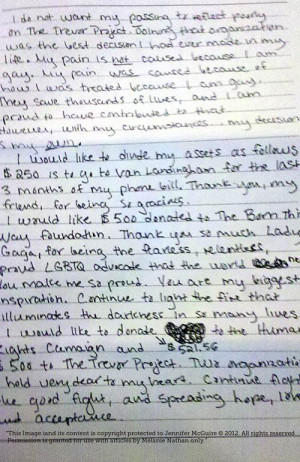 I do not want my passing to reflect poorly
on The Trevor Project. Joining that organization
was the best decision I had ever made in my
life. My pain is not caused because I am
gay. My pain was caused because of
how I was treated because I am gay.
They save thousands of lives, and I am
proud to have contributed to that.
However, with my circumstances - my decision
is my own.
I would like to divide my assets as follows
$250 is to go to Van Landingham for the last
3 months of my phone bill. Thank you, my
friend, for being so gracious.
I would like $500 donated to The Born This
Way foundation. Thank you so much Lady
Gaga, for being the fearless, relentless,
proud LGBTQ advocate that the world
You make me so proud. You are my biggest
inspiration. Continue to light the fire that
illuminates the darkness in so many lives
I would like to donate to the Human
Rights Campaign and $521.56
$500 to The Trevor Project. Two organizatio
I hold very dear to my heart. Continue fight
the good fight, and spreading hope, love
and acceptance.
"This Image (and its content is copyright protected to Jennifer McGuire © 2012. All rights reserved.
Permission is granted for use with articles by Melanie Nathan only."